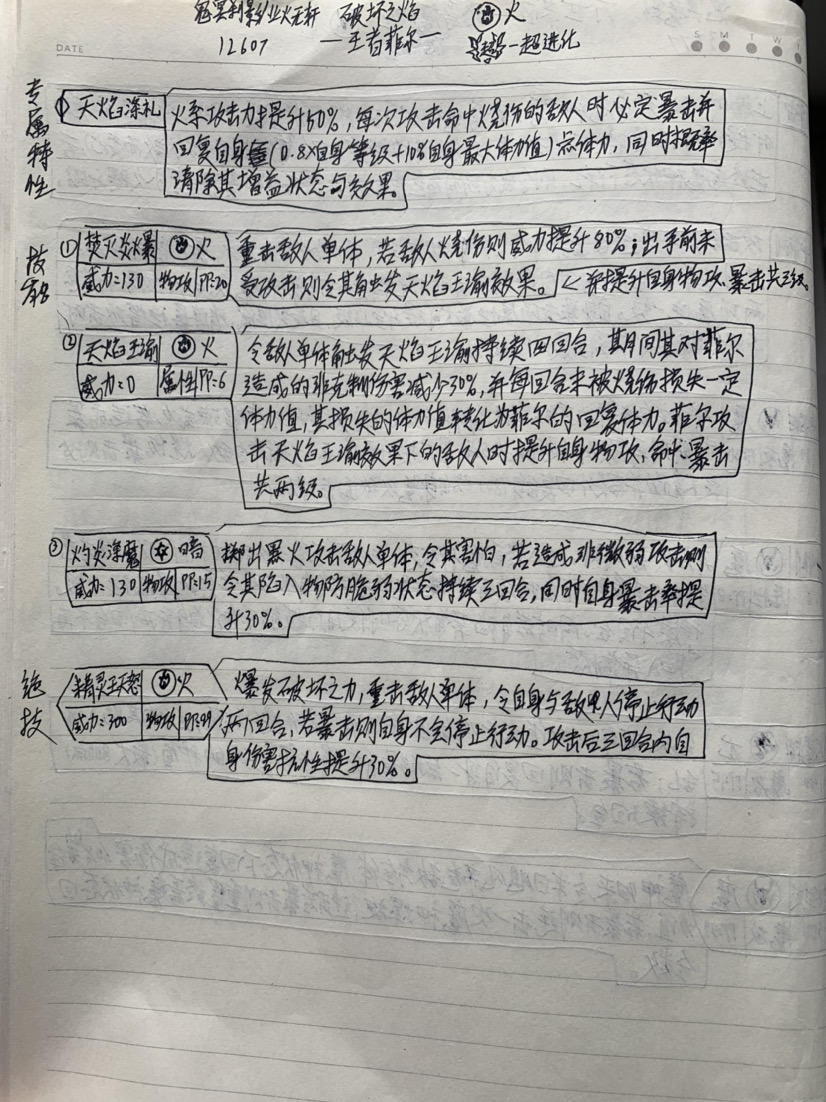 破坏之焰 火
12607 —王者菲尔— 超进化
DATE S M T W T
专属特性
① 天焰涤礼
火系攻击力提升50%，每次攻击命中烧伤的敌人时必定暴击并
回复自身(0.8×自身等级+10%自身最大体力值)点体力，同时概率
清除其增益状态与效果。
技能
① 焚灭炎爆 火
威力=130 物攻 PP=20
重击敌人单体，若敌人烧伤则威力提升80%；出手前未
受攻击则令其触发天焰王谕效果。 ← 并提升自身物攻、暴击共三级。
② 天焰王谕 火
威力=0 属性 PP=6
令敌人单体触发天焰王谕持续四回合，其月间其对菲尔
造成的非克制伤害减少30%，并每回合末被烧伤损失一定
体力值，其损失的体力值转化为菲尔的回复体力。菲尔攻
击天焰王谕效果下的敌人时提升自身物攻、命中、暴击
共两级。
③ 灼炎涤魔 暗
威力=130 物攻 PP=15
掷出黑火攻击敌人单体，令其害怕，若造成非微弱攻击则
令其陷入物防脆弱状态持续三回合，同时自身暴击率提
升30%。
绝技
精灵王天怒 火
威力=300 物攻 PP=99
爆发破坏之力，重击敌人单体，令自身与敌人停止行动
两回合，若暴击则自身不会停止行动。攻击后三回合内自
身伤害抗性提升30%。